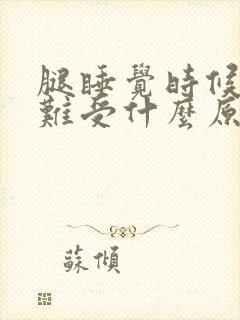 腿睡覺時候
難受什麼原
蘇傾